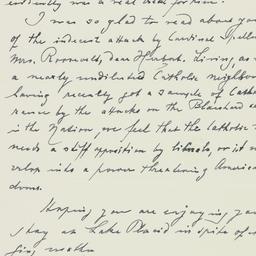 evidently was a real
I was so glad to read about you
of the indecent attack by Cardinal Spellm
Mrs. Roosevelt, dear Herbert. Living, as
a nearly undiluted Catholic neighbo
having recently got a sample of Catho
rance by the attacks on the Blanshard
in the Nation, we feel that the Catholic
needs a stiff opposition by liberals, or it
velop into a power threatening America
doms.
Hoping you are enjoying you
stay at Lake Placid in spite of